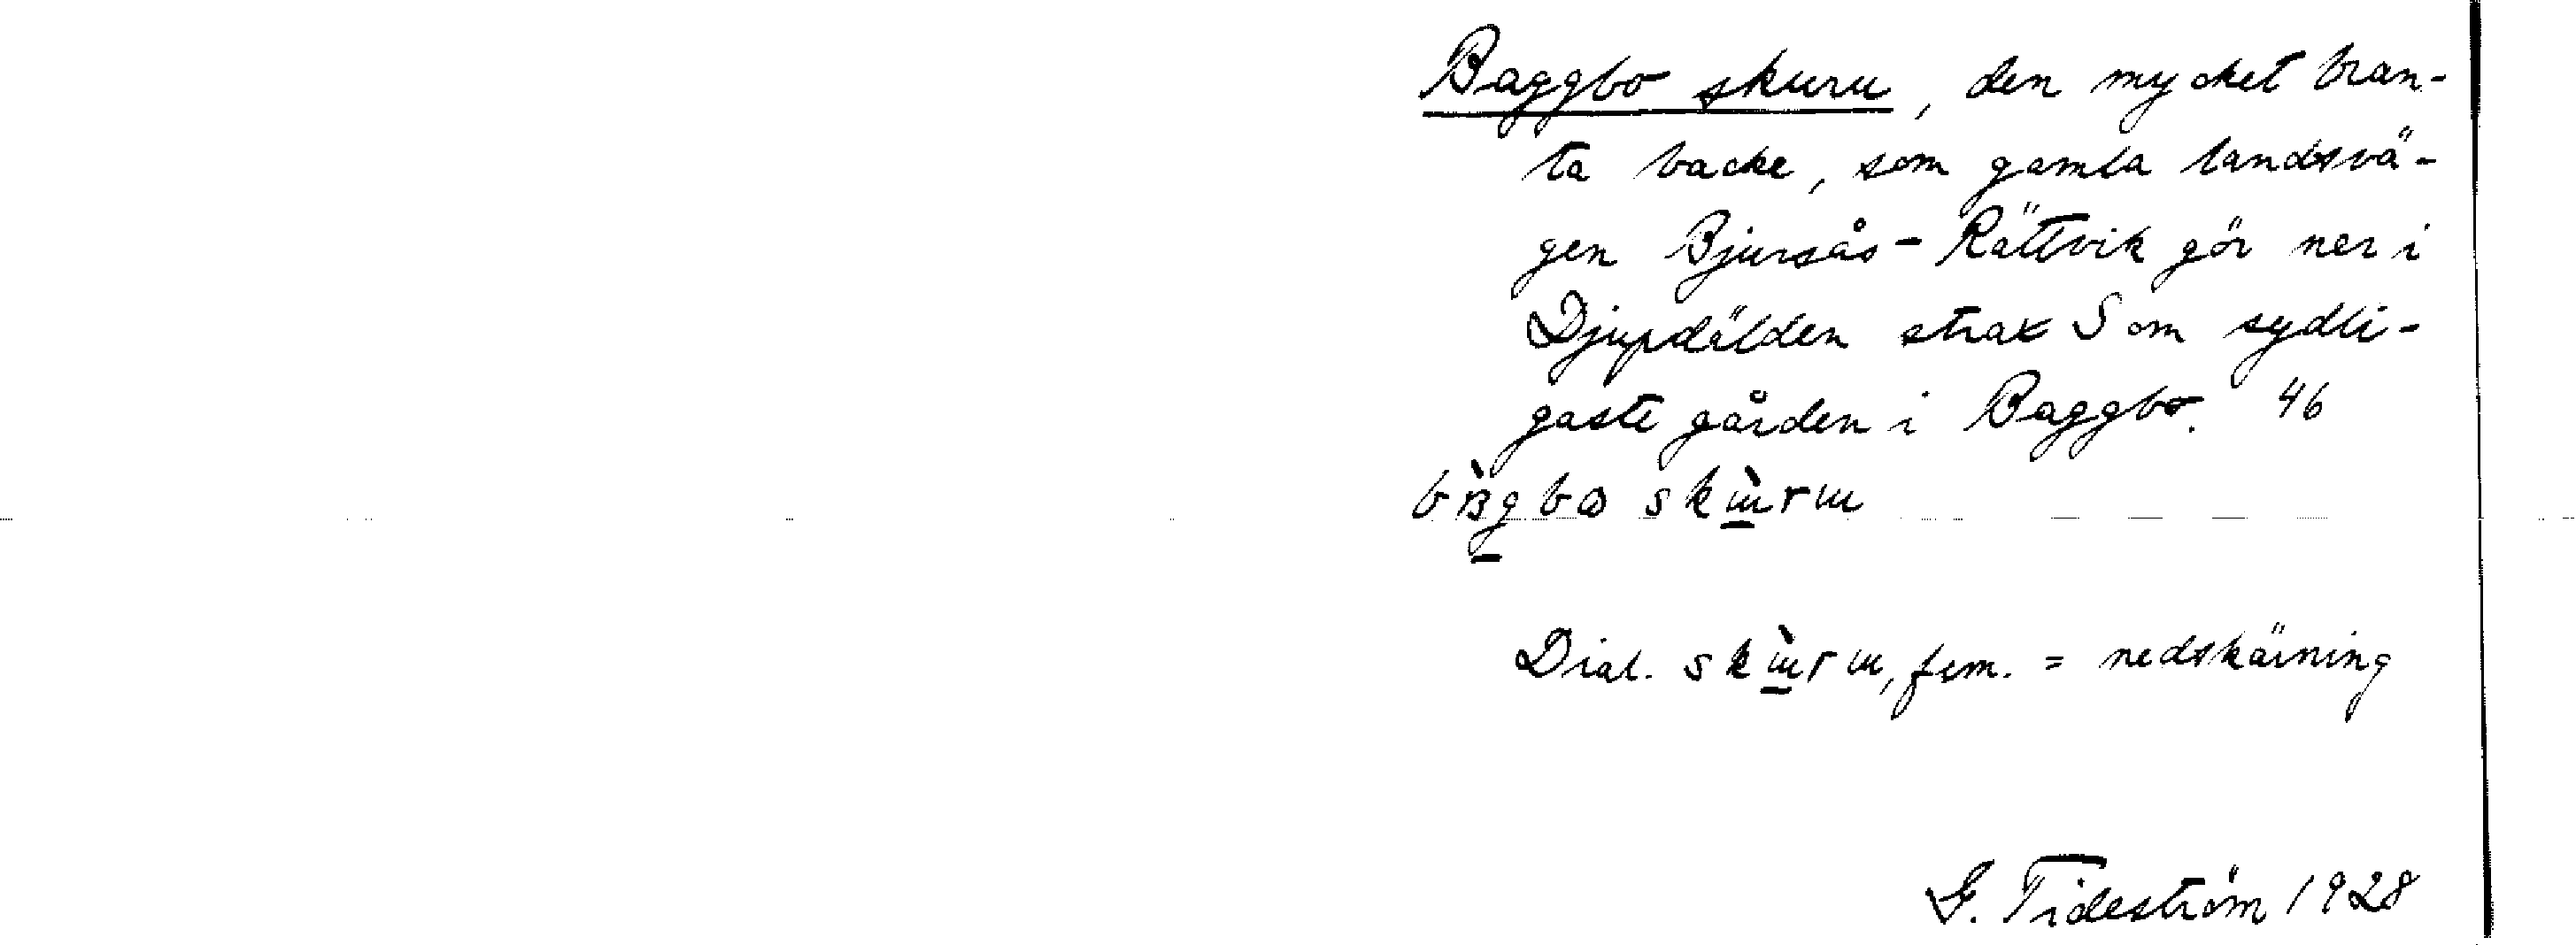 Baggbo skuru, den mycket bran-
ta backe, som gamla landsvä-
gen Bjursås - Rättvik gör ner i
Djupdälden strax S om sydli-
gaste gården i Baggbo. 46
Dial. skɯ̀rɯ, fem. = nedskärning
G. Tideström 1928